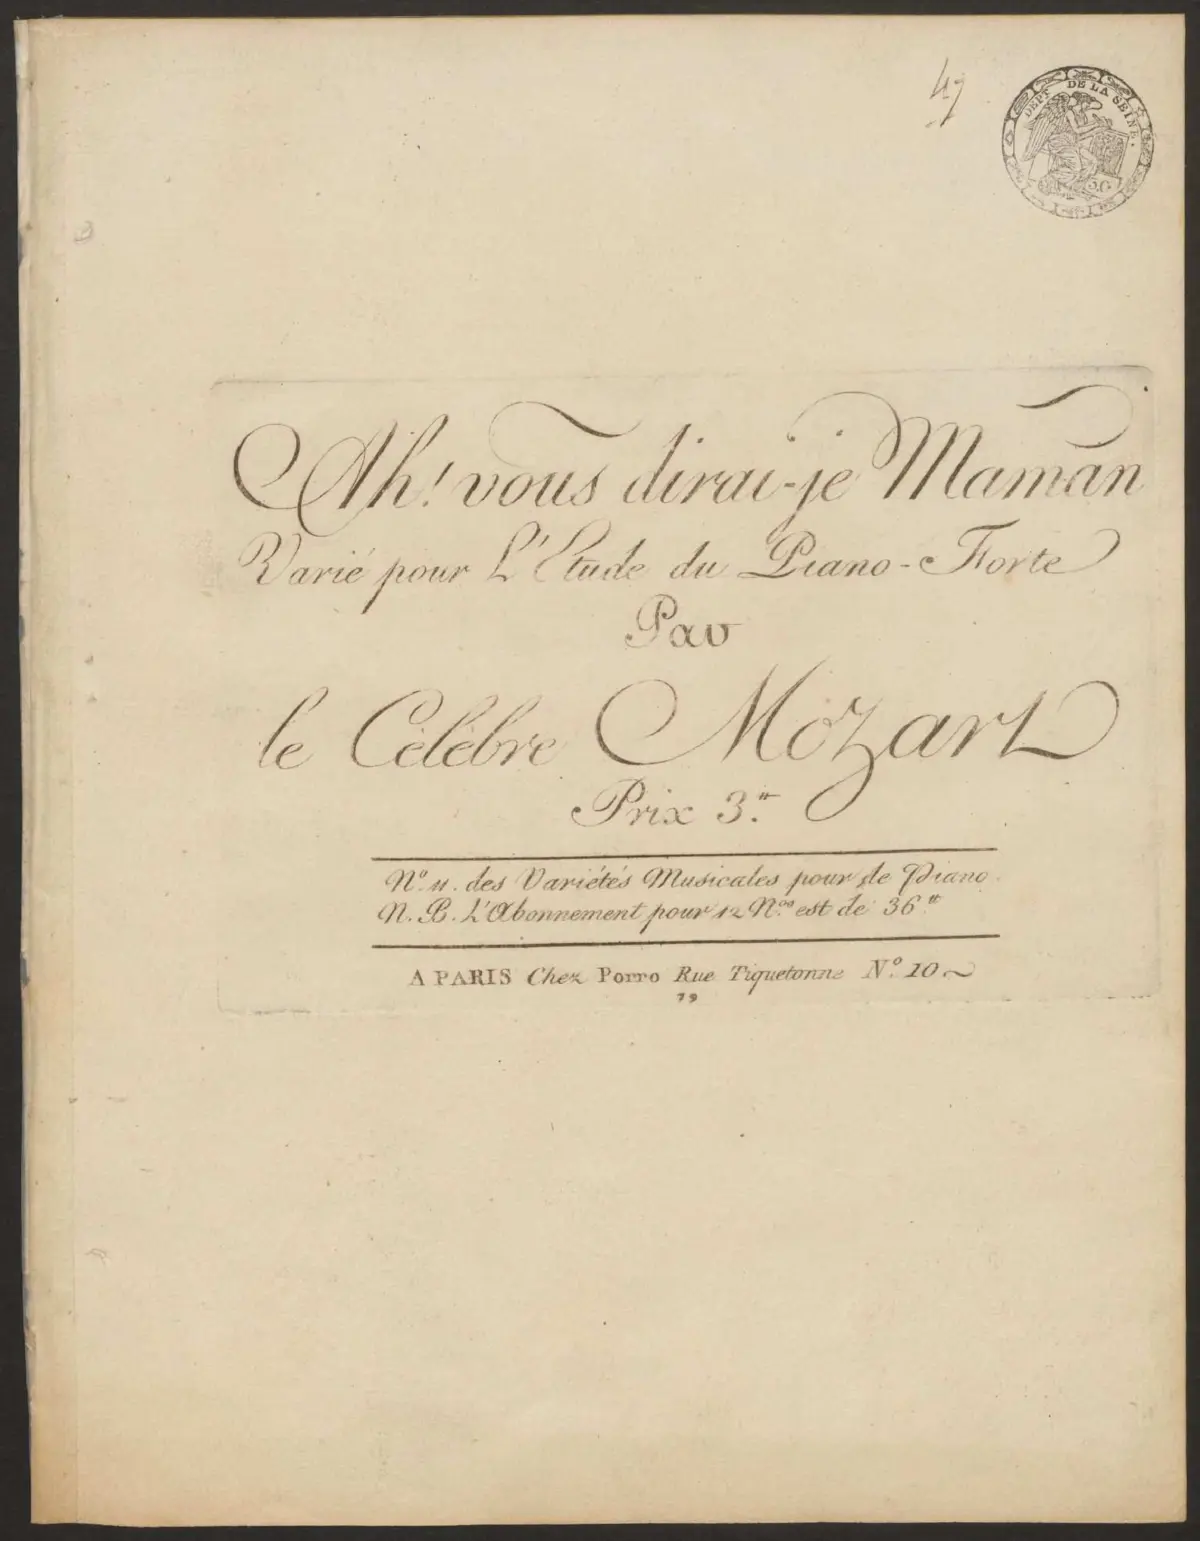 47
DEPT DE LA SEINE.
5.C
Ah! vous dirai-je Maman
Varié pour L'Etude du Piano-Forte
Par
le Célèbre Mozart
Prix 3.tt
N.o 11. des Variétés Musicales pour le Piano.
N. B. L'Abonnement pour 12 N.os est de 36.tt
A PARIS Chez Porro Rue Tiquetonne N.o 10
79